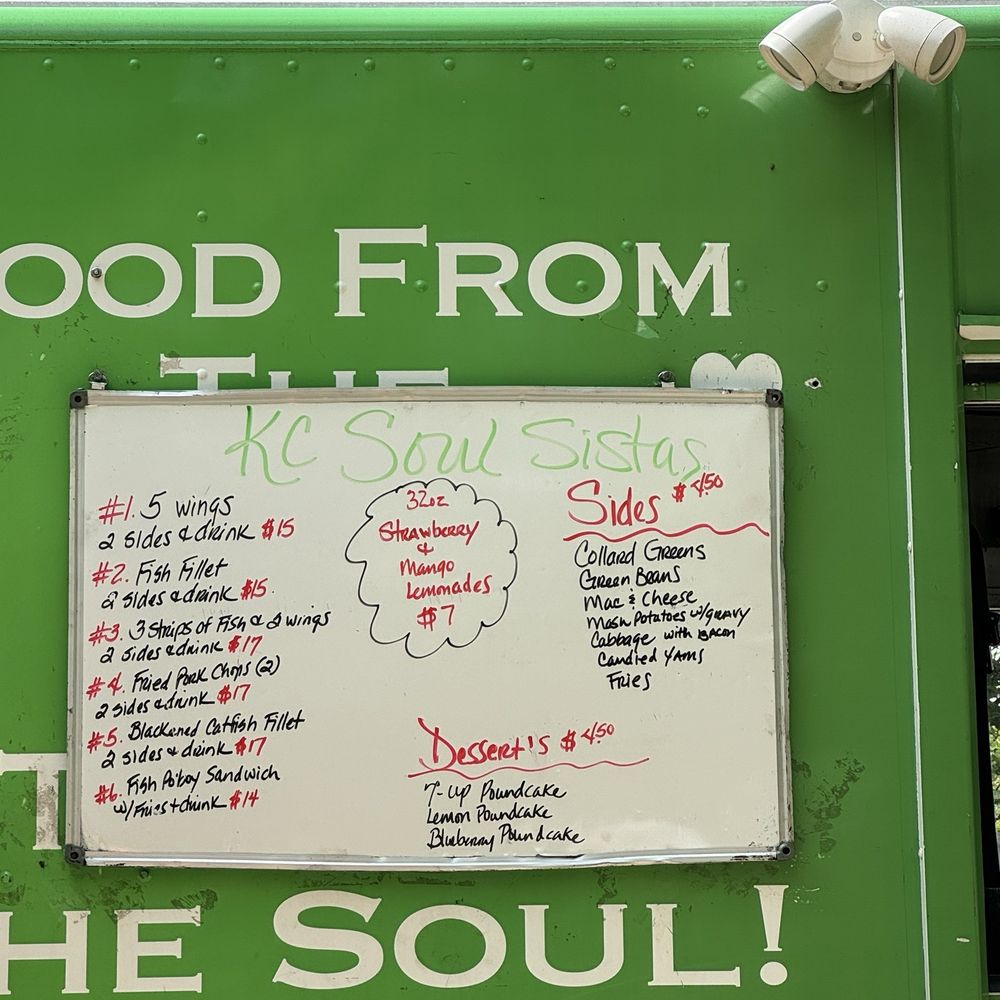 OOD FROM
THE
KC Soul Sistas
#1. 5 wings
2 sides & drink $15
#2. Fish Fillet
2 sides & drink $15
#3. 3 Strips of Fish & 2 wings
2 sides & drink $17
#4. Fried Pork Chops (2)
2 sides & drink $17
#5. Blackened Catfish Fillet
2 sides & drink $17
#6. Fish Po'boy Sandwich
w/ Fries + drink $14
32oz
Strawberry
&
Mango
Lemonades
$7
Sides $4.50
Collard Greens
Green Beans
Mac & Cheese
Mash Potatoes w/gravy
Cabbage with Bacon
Candied Yams
Fries
Dessert's $4.50
7-up Poundcake
Lemon Poundcake
Blueberry Poundcake
HE SOUL!